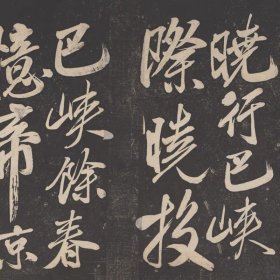 曉行巴峽
際曉投
巴峽餘春
憶帝京